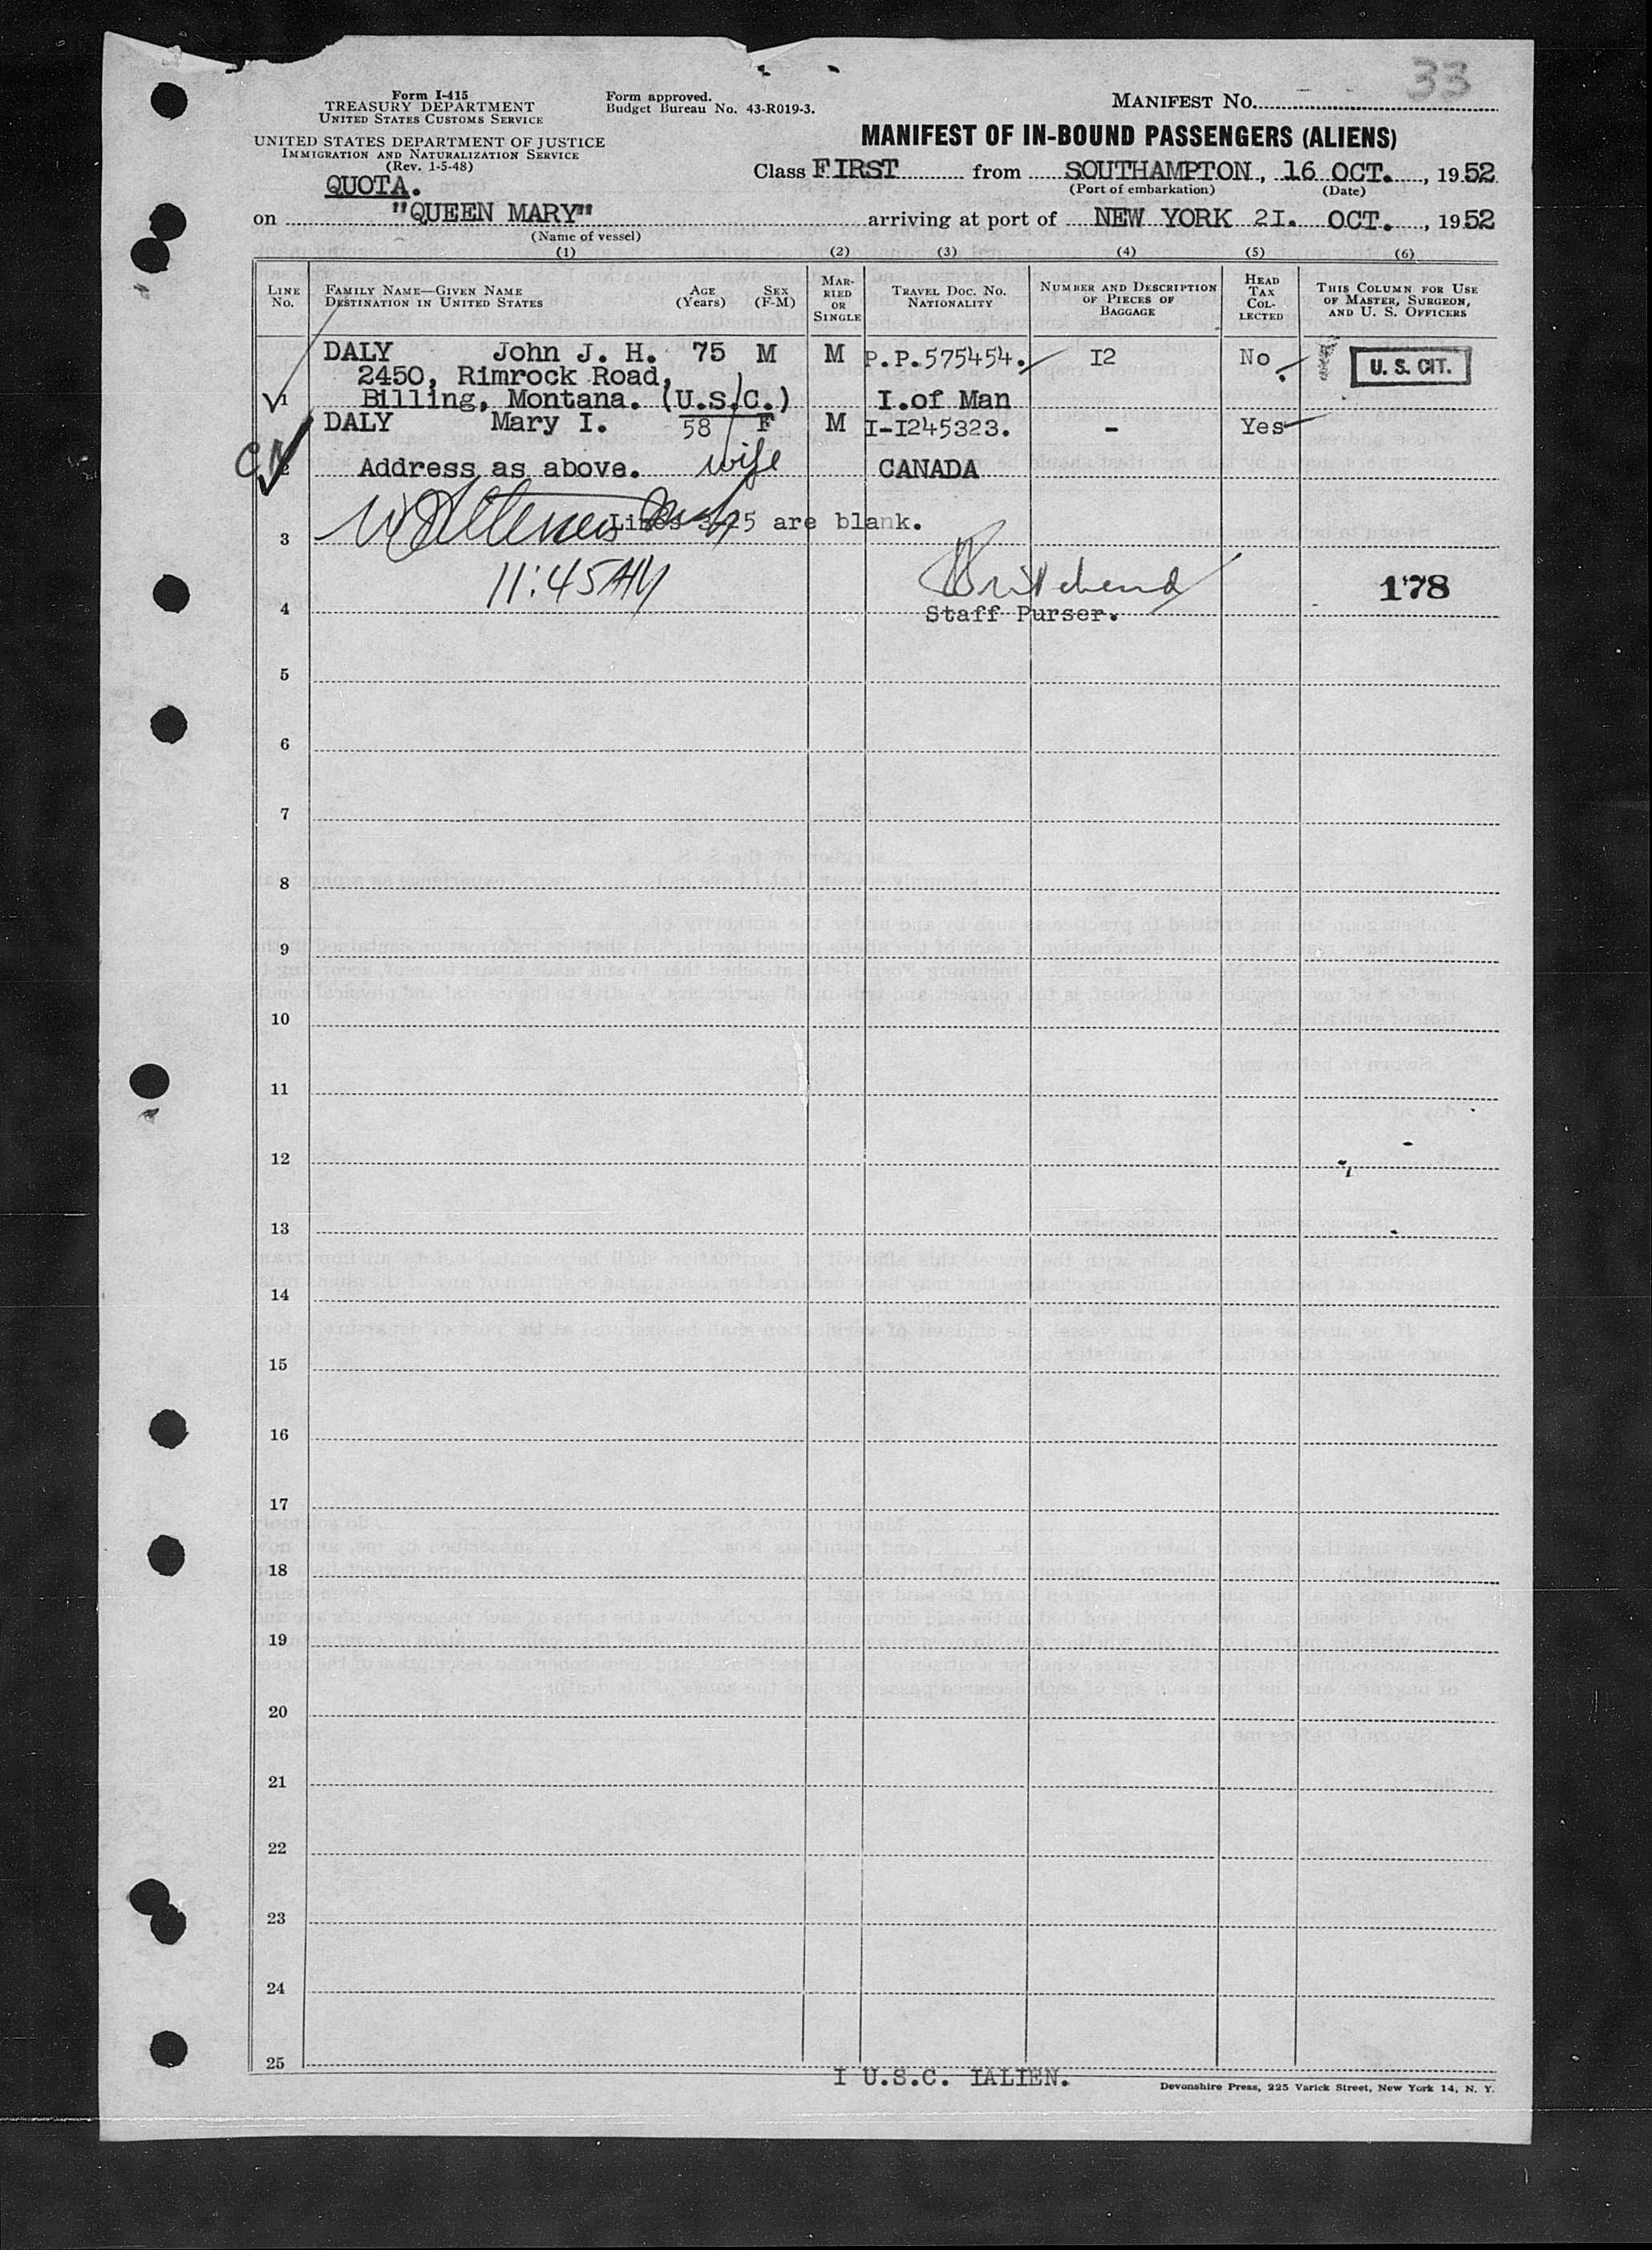 33
Form I-415
TREASURY DEPARTMENT
UNITED STATES CUSTOMS SERVICE
Form approved.
Budget Bureau No. 43-R019-3.
MANIFEST NO.
UNITED STATES DEPARTMENT OF JUSTICE
IMMIGRATION AND NATURALIZATION SERVICE
(Rev. 1-5-48)
MANIFEST OF IN-BOUND PASSENGERS (ALIENS)
QUOTA.
Class FIRST from SOUTHAMPTON, 16 OCT., 1952
(Port of embarkation) (Date)
on "QUEEN MARY" arriving at port of NEW YORK 21. OCT., 1952
(Name of vessel)
(1) (2) (3) (4) (5) (6)
LINE No. FAMILY NAME—GIVEN NAME DESTINATION IN UNITED STATES AGE (Years) SEX (F-M) MARRIED OR SINGLE TRAVEL DOC. NO. NATIONALITY NUMBER AND DESCRIPTION OF PIECES OF BAGGAGE HEAD TAX COLLECTED THIS COLUMN FOR USE OF MASTER, SURGEON, AND U. S. OFFICERS
DALY John J. H. 75 M M P.P.575454. I2 No U. S. CIT.
2450, Rimrock Road,
1 Billing, Montana. (U.S.C.) I.of Man
DALY Mary I. 58 F M I-I245323. - Yes
2 Address as above. wife CANADA
Lines 3-25 are blank.
3
11:45AM
178
4 Staff Purser.
5
6
7
8
9
10
11
12
13
14
15
16
17
18
19
20
21
22
23
24
25
I U.S.C. IALIEN.
Devonshire Press, 225 Varick Street, New York 14, N. Y.